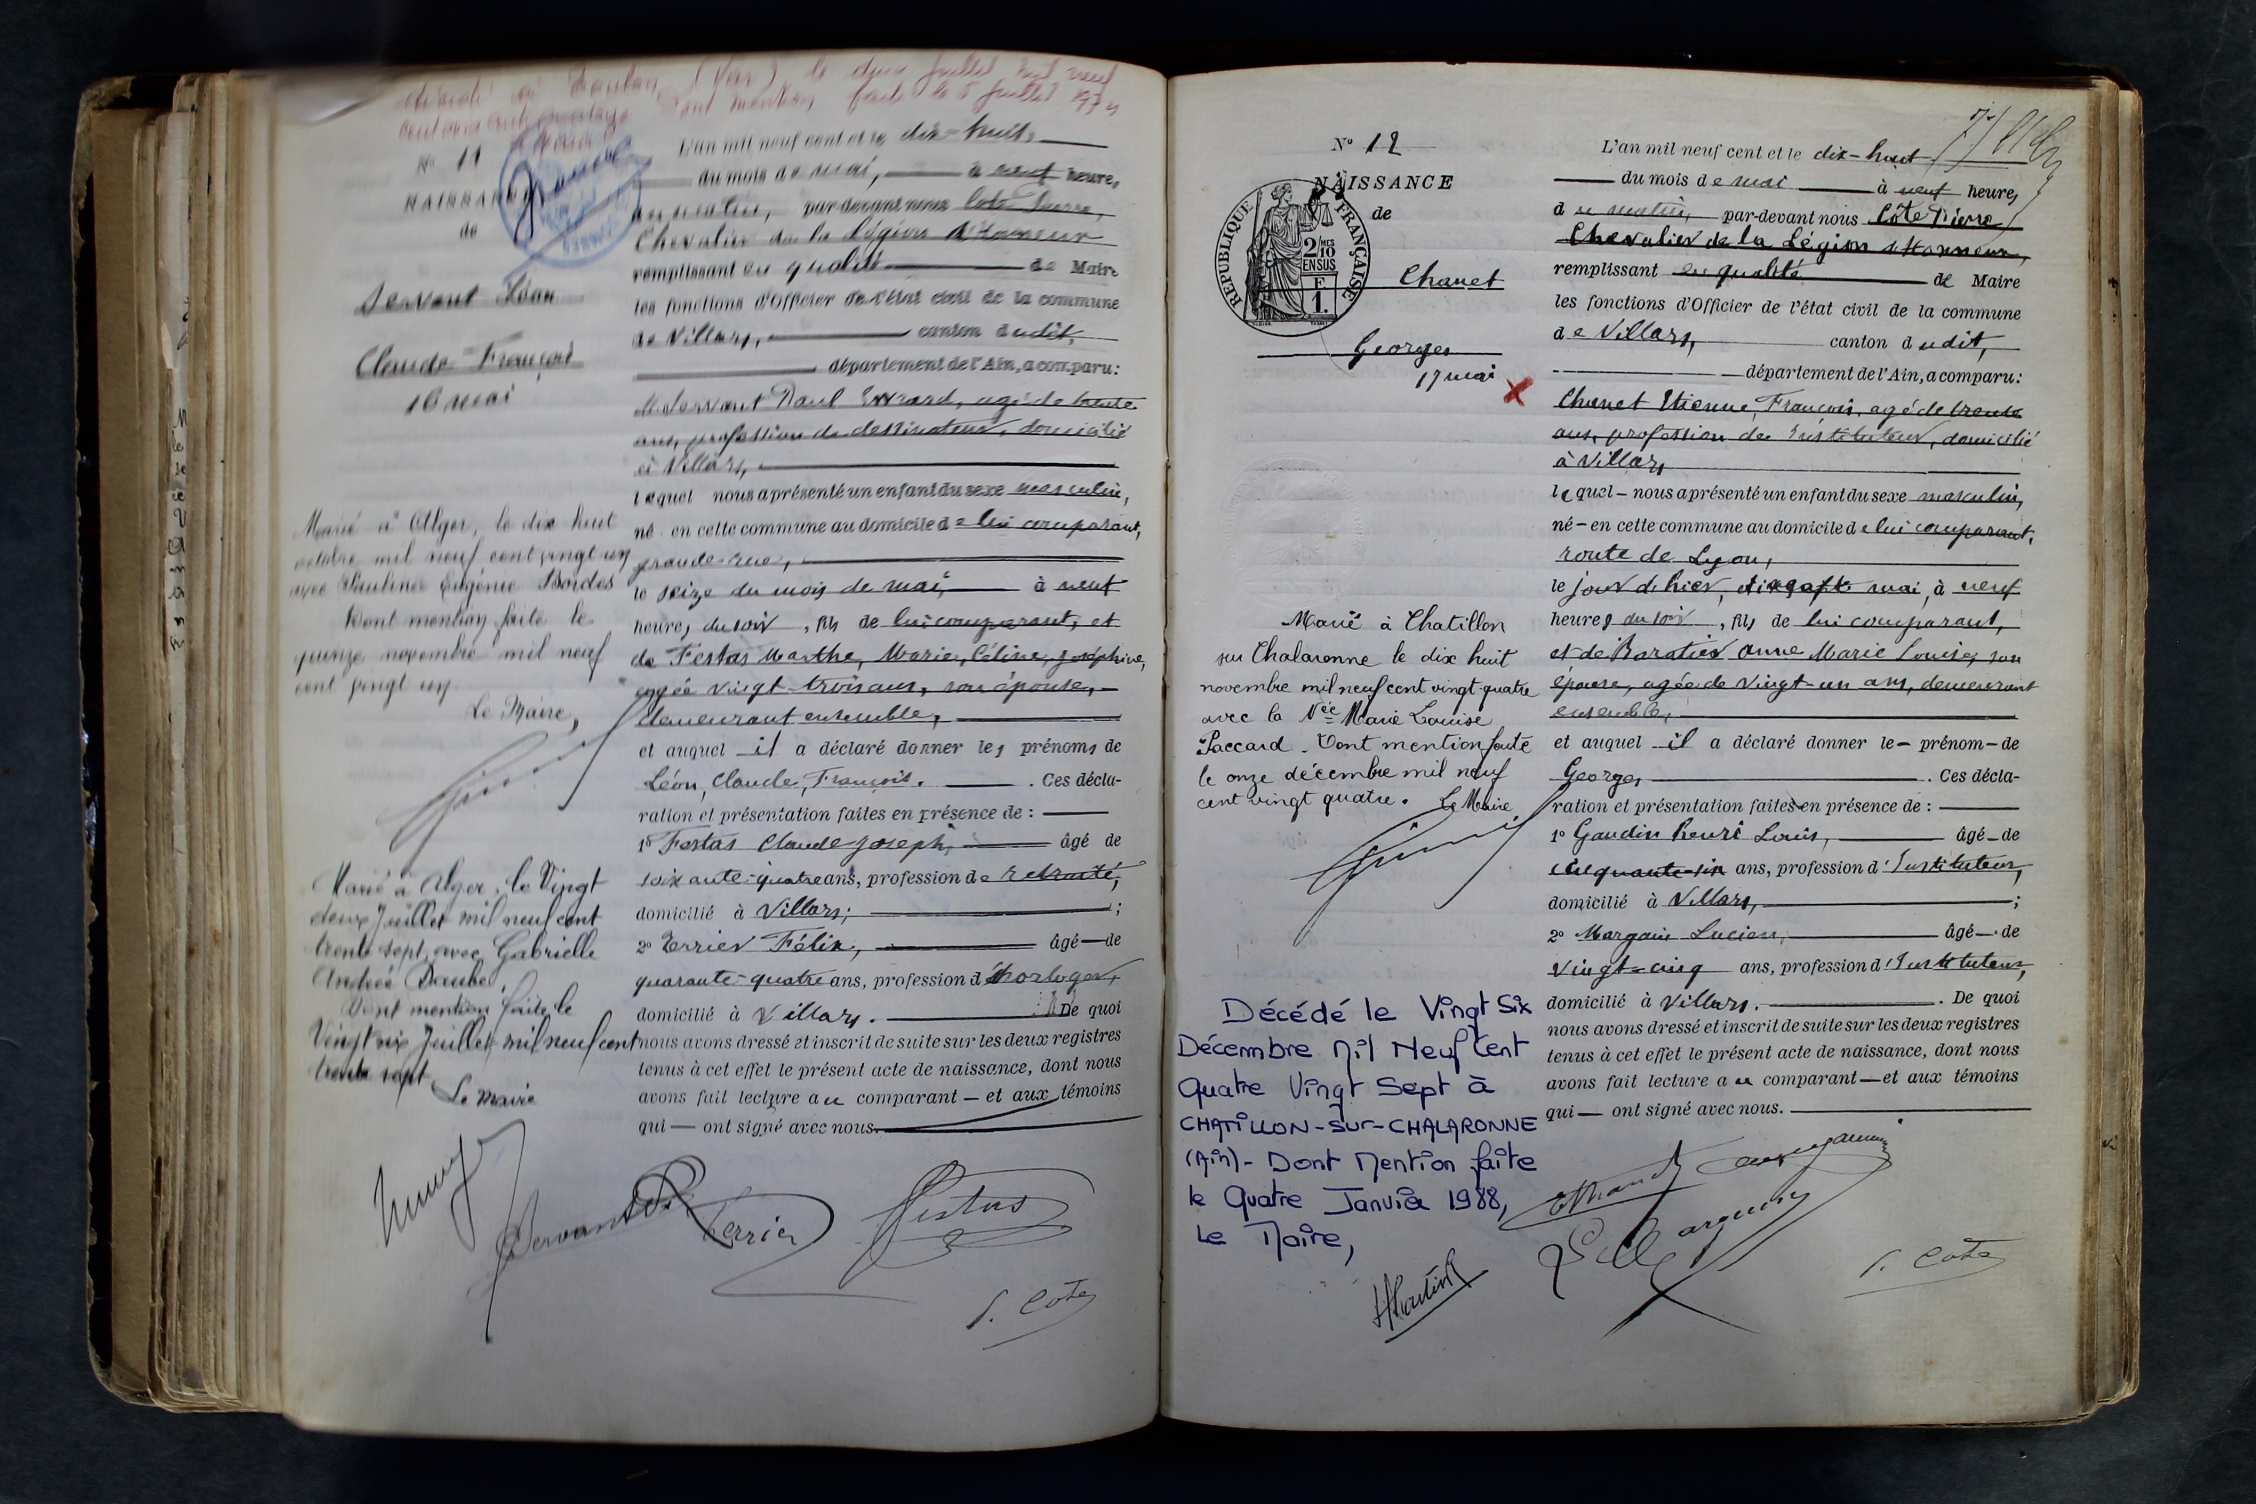 décédé à Toulon (Var) le deux Juillet mil neuf
cent Dont mention faite le 5 Juillet
L'an mil neuf cent et le dix-huit,
No 11
du mois de mai, à neuf heures
NAISSANCE
du matin, par-devant nous Cote Pierre,
de
Chevalier de la Légion d'Honneur
remplissant en qualité de Maire
Servant Léon
les fonctions d'Officier de l'état civil de la commune
de Villars, canton dudit,
Claude François
département de l'Ain, a comparu:
16 mai
Servant Paul , agé de trente
ans, profession de dessinateur, domicilié
à Villars,
lequel nous a présenté un enfant du sexe masculin,
né en cette commune au domicile de lui comparant,
grande rue,
le seize du mois de mai, à neuf
heures du soir, fils de lui comparant, et
de Festas Marthe, Marie, Céline, Joséphine,
agée vingt-trois ans, son épouse,
demeurant ensemble,
et auquel il a déclaré donner les prénoms de
Léon, Claude, François. Ces décla-
ration et présentation faites en présence de :
1o Festas Claude Joseph, âgé de
soixante-quatre ans, profession de retraité,
domicilié à Villars; ;
2o Terrier Félix, âgé de
quarante-quatre ans, profession d'horloger,
domicilié à Villars. De quoi
nous avons dressé et inscrit de suite sur les deux registres
tenus à cet effet le présent acte de naissance, dont nous
avons fait lecture au comparant et aux témoins
qui ont signé avec nous.
Marié à Alger, le dix huit
octobre mil neuf cent vingt un
avec Pauline Eugénie Bordes
Dont mention faite le
quinze novembre mil neuf
cent vingt un
Le Maire,
Marié à Alger, le Vingt
deux Juillet mil neuf cent
trente sept, avec Gabrielle
Andrée Daube
Dont mention faite le
Vingt six Juillet mil neuf cent
trente sept
Le Maire
Servant Terrier Festas
P. Cote
No 12
NAISSANCE
de
REPUBLIQUE FRANÇAISE
2/10 MES
EN SUS
F
1.
Chanet
Georges
17 mai
X
L'an mil neuf cent et le dix-huit
du mois de mai à neuf heures
du matin, par-devant nous Côte Pierre
Chevalier de la Légion d'Honneur,
remplissant en qualité de Maire
les fonctions d'Officier de l'état civil de la commune
de Villars, canton dudit,
département de l'Ain, a comparu:
Chanet Etienne, François, agé de trente
ans, profession de Instituteur, domicilié
à Villars
lequel nous a présenté un enfant du sexe masculin,
né en cette commune au domicile de lui comparant,
route de Lyon,
le jour d'hier, dix sept mai, à neuf
heures du soir, fils de lui comparant,
et de Baratier Anne Marie Louise, son
épouse, agée de vingt-un ans, demeurant
ensemble,
et auquel il a déclaré donner le prénom de
Georges . Ces décla-
ration et présentation faites en présence de :
1o Gaudin Henri Louis, âgé de
cinquante-six ans, profession d'Instituteur,
domicilié à Villars, ;
2o Margain Lucien, âgé de
vingt-cinq ans, profession d'Instituteur,
domicilié à Villars. De quoi
nous avons dressé et inscrit de suite sur les deux registres
tenus à cet effet le présent acte de naissance, dont nous
avons fait lecture au comparant et aux témoins
qui ont signé avec nous.
Marié à Chatillon
sur Chalaronne le dix huit
novembre mil neuf cent vingt-quatre
avec la Née Marie Louise
Paccard. Dont mention faite
le onze décembre mil neuf
cent vingt quatre. Le Maire
Décédé le Vingt Six
Décembre Mil Neuf Cent
Quatre Vingt Sept à
CHATILLON-sur-CHALARONNE
(Ain)- Dont Mention faite
le Quatre Janvier 1988,
Le Maire,
P. Cote